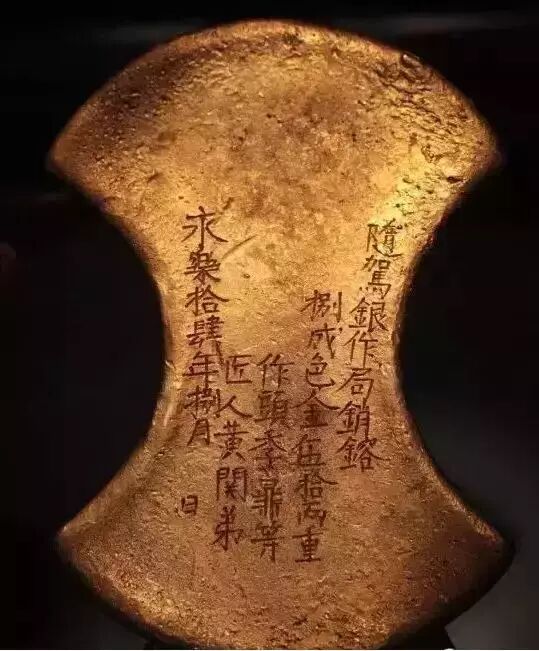 隨駕銀作局銷鎔
捌成色金伍拾兩重
作頭季鼎等
匠人黃関弟
永樂拾肆年捌月
日